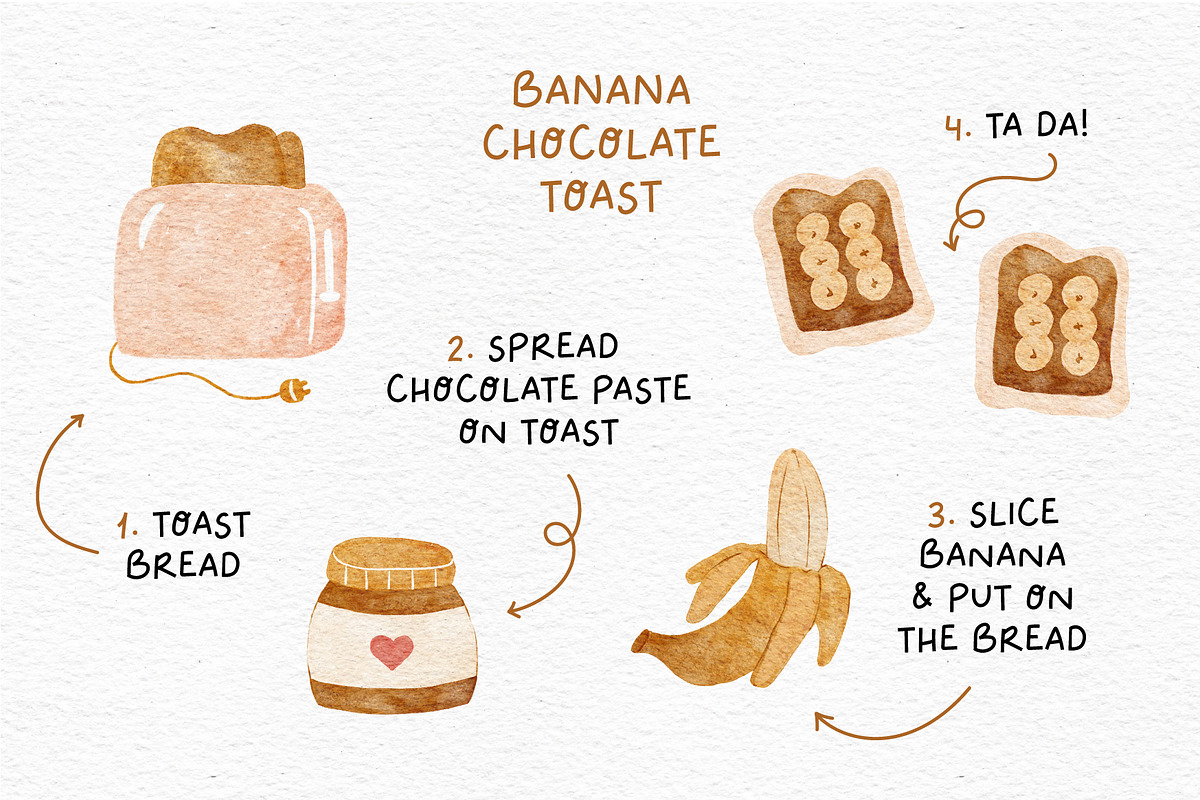 BANANA
CHOCOLATE
TOAST
1. TOAST
BREAD
2. SPREAD
CHOCOLATE PASTE
ON TOAST
3. SLICE
BANANA
& PUT ON
THE BREAD
4. TA DA!